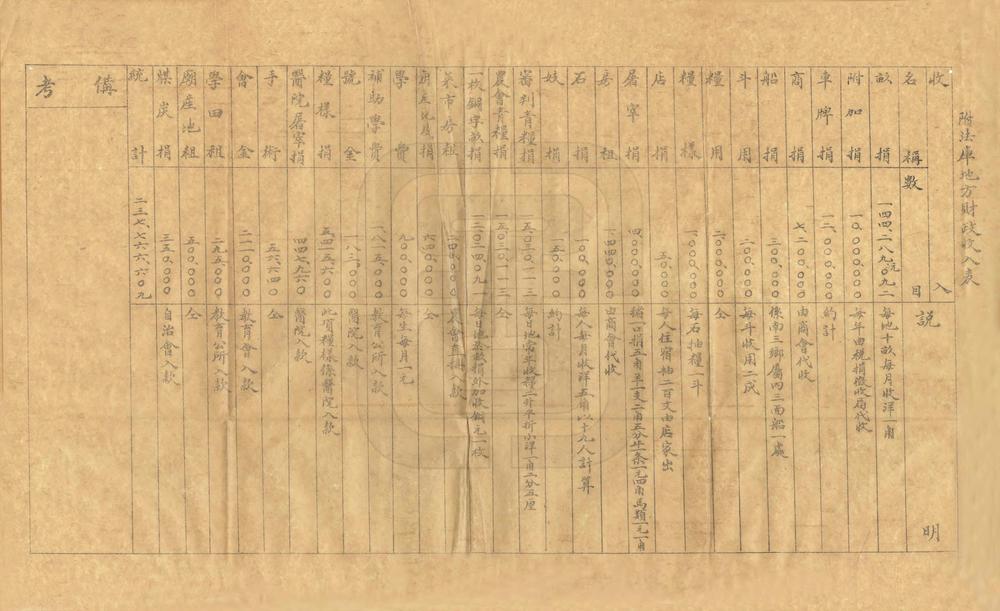 附法庫地方財政收入表
收入
名稱 數目 說明
畝捐 一四四、二八九元〇九二 每地十畝每月收洋一角
附加捐 一〇、〇〇〇〇〇〇 每年由稅捐徵收局代收
車牌捐 一二、〇〇〇〇〇〇 約計
商捐 七、二〇〇〇〇〇 由商會代收
船捐 三〇〇〇〇〇 係南三鄉屬內三面船一處
斗用 二、〇〇〇〇〇 每斗收用二成
糧用 二、〇〇〇〇〇〇 仝
糧樣 一、〇〇〇〇〇〇 每石抽糧一斗
店捐 五〇、〇〇〇 每人住宿抽二百文由店家出
屠宰捐 四、〇〇〇〇〇〇 豬一口捐五角羊一支二角五分牛一条一元四角馬類一元一角
房租 一四四〇、〇〇〇 由商會代收
石捐 一〇〇、〇〇〇 每人每月收洋五角以十九人計算
妓捐 一五〇、〇〇〇 約計
審判青糧捐 五、〇三〇、一一三 每日地常年收糧二升平折小洋一角二分五厘
農會青糧捐 五、〇三〇、一一三 仝
一枚銅學畝捐 一三、〇二四、〇九一 每日地至畝捐外加收銅元一枚
菜市房租 二四〇、〇〇〇 農會直接入款
廟產地捐 六四〇、〇〇〇 仝
學費 九〇〇、〇〇〇 每生每月一元
補助學費 一八一五、〇〇〇 教育公所入款
號金 一八三、〇〇〇 醫院入款
糧樣捐 五、四一五六〇〇 此項糧樣係醫院入款
醫院屠宰捐 四四七、九六〇 醫院入款
手術 五六、六四〇 仝
會金 二一一〇、〇〇〇 教育會入款
學田租 二九五、〇〇〇 教育公所入款
廟產地租 五〇〇、〇〇〇 仝
煤炭捐 三五〇、〇〇〇 自治會入款
統計 二三七、七六六、六〇九
備考